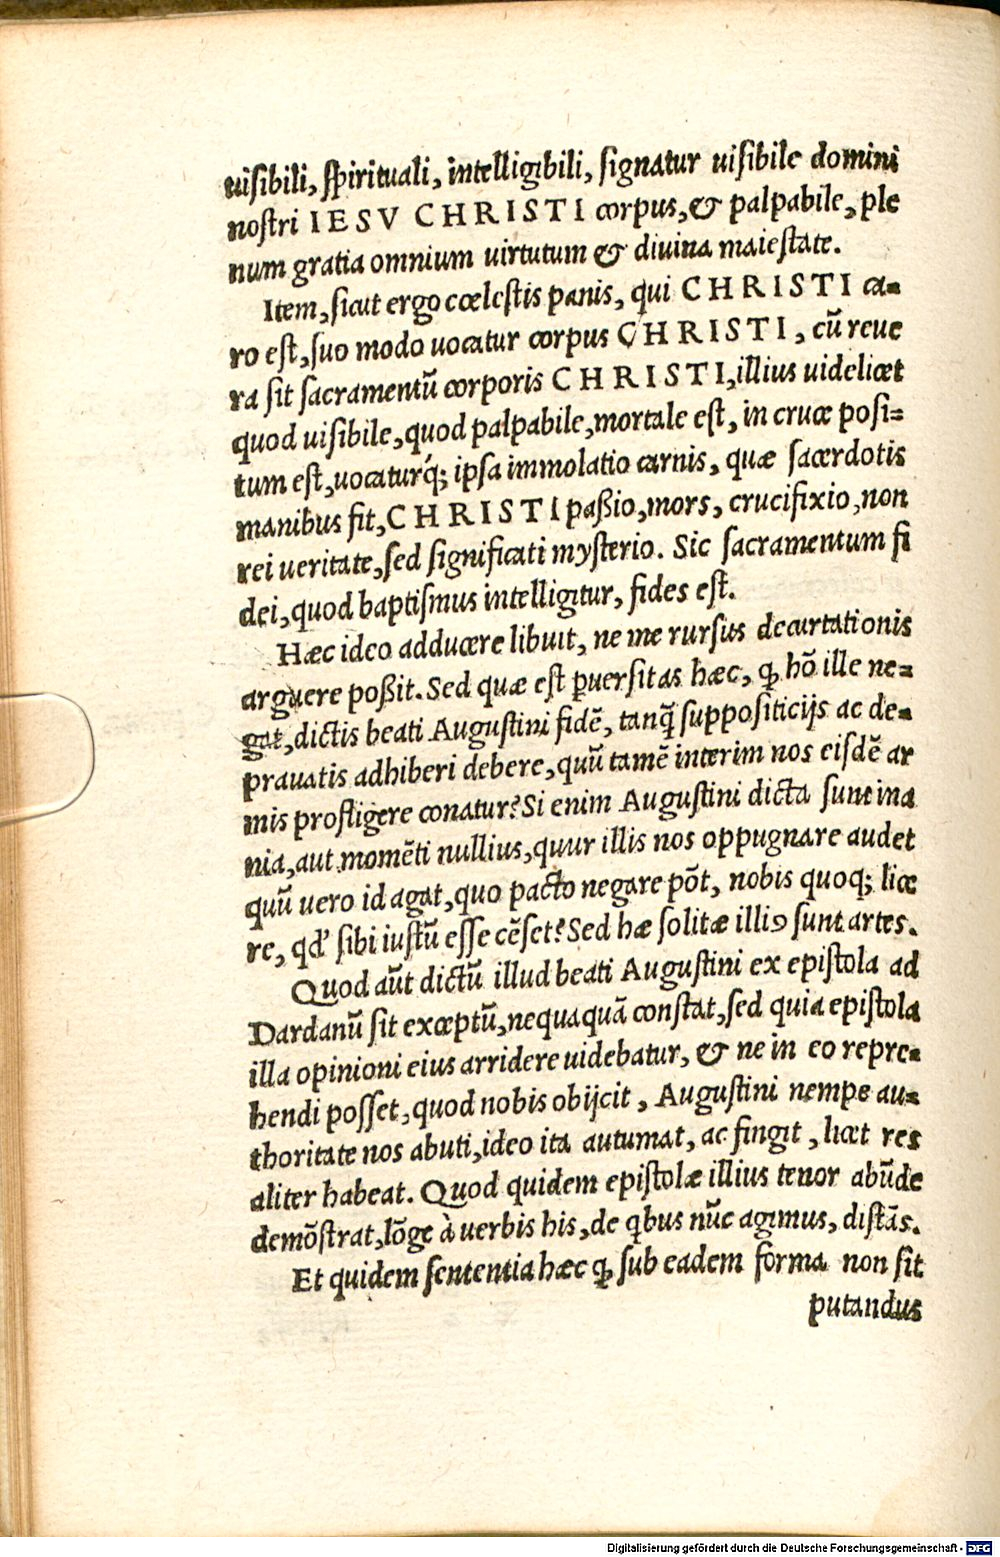 uisibili, spirituali, intelligibili, signatur uisibile domini
nostri IESV CHRISTI corpus, & palpabile, ple
num gratia omnium uirtutum & diuina maiestate.
Item, sicut ergo cœlestis panis, qui CHRISTI ca-
ro est, suo modo uocatur corpus CHRISTI, cũ reue
ra sit sacramentũ corporis CHRISTI, illius uidelicet
quod uisibile, quod palpabile, mortale est, in cruce posi-
tum est, uocaturq́; ipsa immolatio carnis, quæ sacerdotis
manibus fit, CHRISTI paßio, mors, crucifixio, non
rei ueritate, sed significati mysterio. Sic sacramentum fi
dei, quod baptismus intelligitur, fides est.
Hæc ideo adducere libuit, ne me rursus decurtationis
arguere poßit. Sed quæ est ꝑuersitas hæc, ꝙ hõ ille ne-
gat, dictis beati Augustini fidẽ, tanq̃ suppositicijs ac de-
prauatis adhiberi debere, quũ tamẽ interim nos eisdẽ ar
mis profligere conatur? Si enim Augustini dicta sunt ina
nia, aut momẽti nullius, quur illis nos oppugnare audet
quũ uero id agat, quo pacto negare põt, nobis quoq; lice
re, qd' sibi iustũ esse cẽset? Sed hæ solitæ illiꝰ sunt artes.
Quod aũt dictũ illud beati Augustini ex epistola ad
Dardanũ sit exceptũ, nequaquã constat, sed quia epistola
illa opinioni eius arridere uidebatur, & ne in eo repre-
hendi posset, quod nobis obijcit, Augustini nempe au-
thoritate nos abuti, ideo ita autumat, ac fingit, licet res
aliter habeat. Quod quidem epistolæ illius tenor abũde
demõstrat, lõge à uerbis his, de qbus nũc agimus, distãs.
Et quidem sententia hæc ꝙ sub eadem forma non sit
putandus
Digitalisierung gefördert durch die Deutsche Forschungsgemeinschaft - DFG